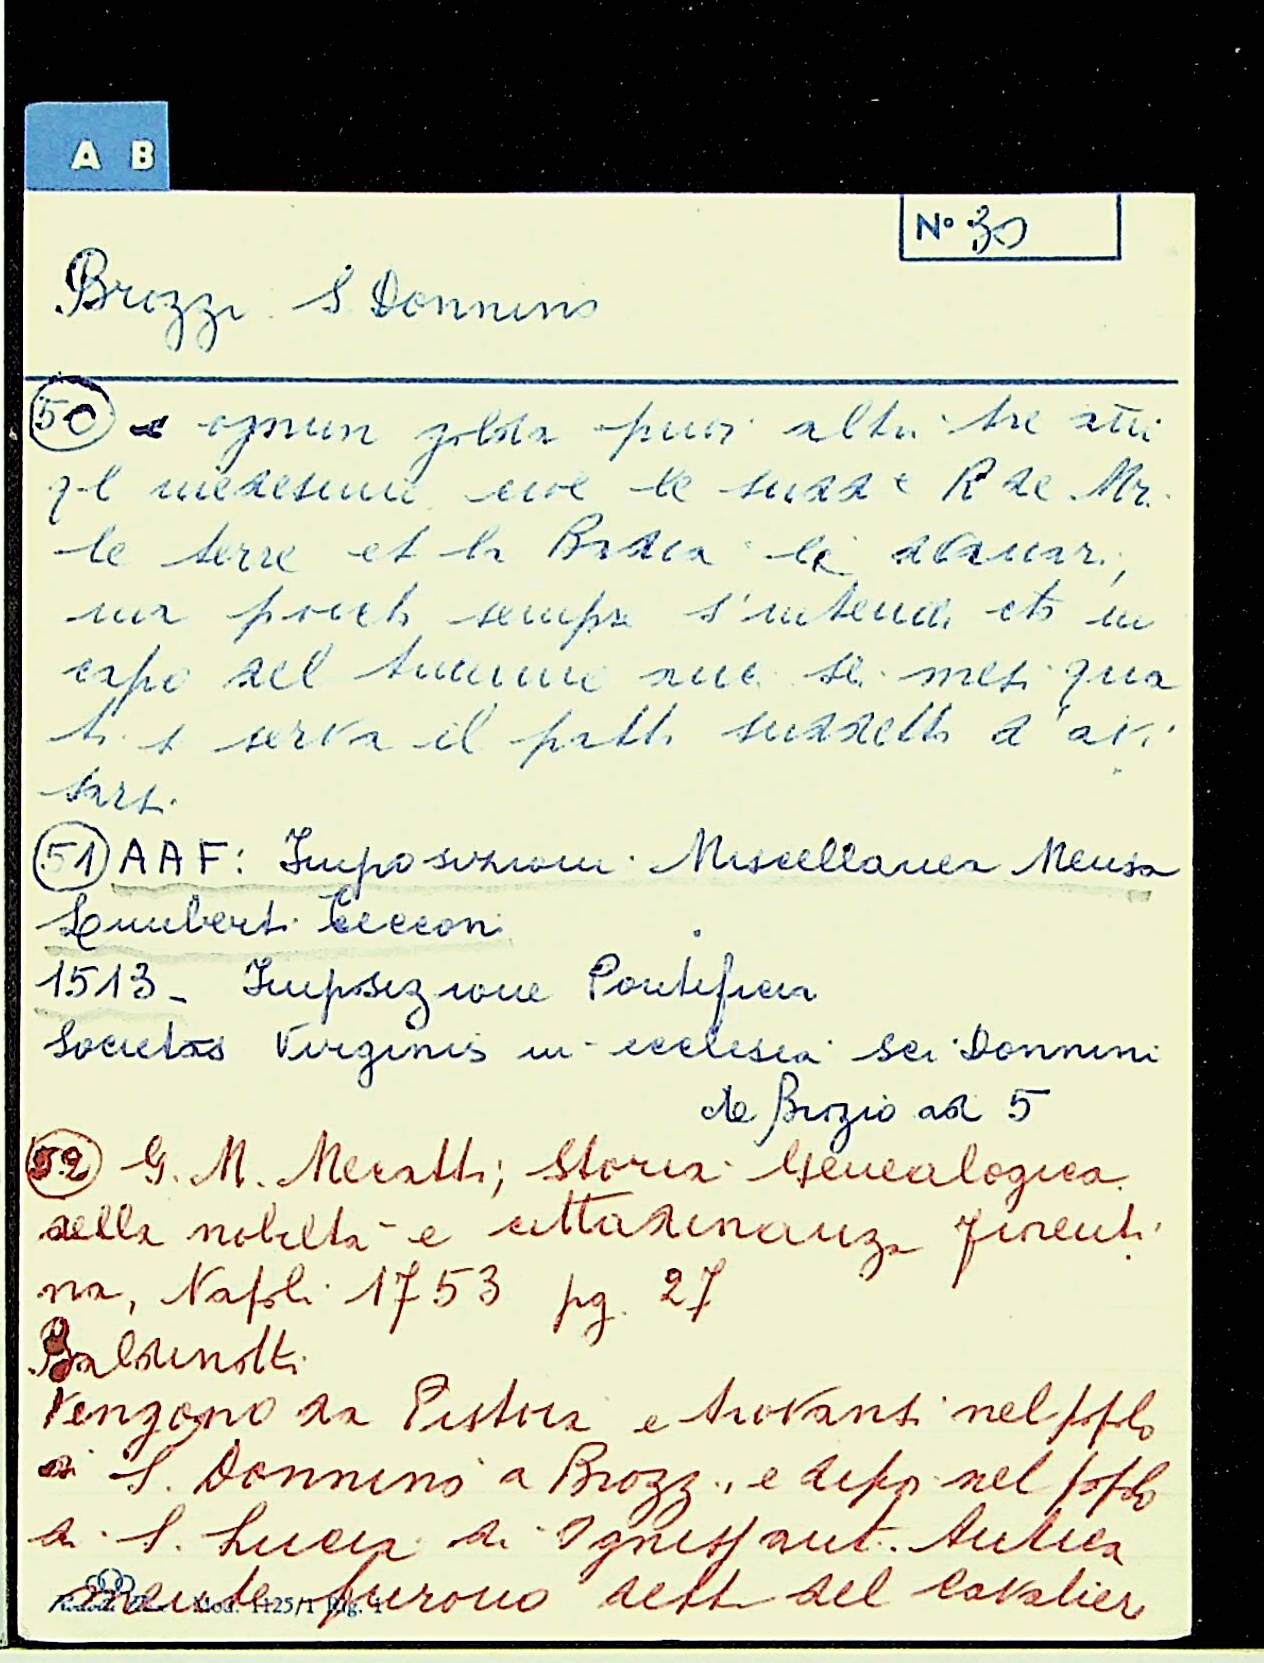 A B
N° 30
Brozzi S Donnino
50 e ognun golda puoi altri tre anni
q-l medesimi cioè le sudd e R de Mr.
le terre et la Badia li danari,
ma perch sempre s'intende etc in
capo del tremine sei mesi qua
si serva il patto suddetto d'avi
sarsi.
51 AAF: Imposizioni Miscellanea Mensa
Lumberti Cecconi
1513 - Imposizione Pontificia
Societas Virginis in ecclesia sci Donnini
de Brozio ad 5
52 G. M. Mecatti; Storia Genealogica
della nobiltà e cittadinanza fiorenti
na, Napoli 1753 pg. 27
Baldinotti
Vengono da Pistoia e trovansi nel popolo
di S. Donnino a Brozzi, e dipoi nel popolo
di S. Lucia di Ognissanti. Antica
mente furono detti del Cavaliere
Mod. 1125/1 Rig. 1